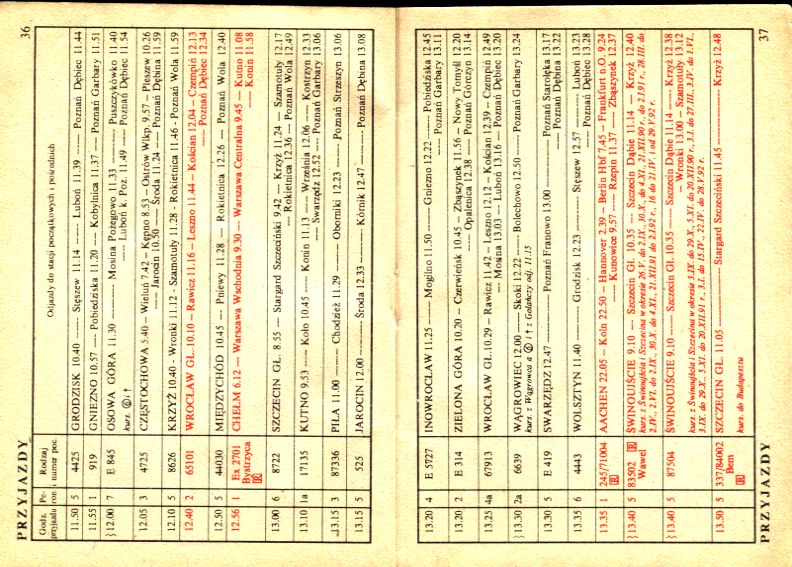 PRZYJAZDY
36
Godz. przyjazdu
Pe-ron
Rodzaj i numer poc.
Odjazdy do stacji początkowych i pośrednich
11.50 5 4425 GRODZISK 10.40 — Stęszew 11.14 — Luboń 11.39 — Poznań Dębiec 11.44
11.55 1 919 GNIEZNO 10.57 — Pobiedziska 11.20 — Kobylnica 11.37 — Poznań Garbary 11.51
}12.00 7 E 845 OSOWA GÓRA 11.30 — Mosina Pożegowo 11.33 — Puszczykówko 11.40
kurs. Ⓒ i † — Luboń k. Poz. 11.49 — Poznań Dębiec 11.54
12.05 3 4725 CZĘSTOCHOWA 5.40 — Kępno 8.53 — Wieluń 7.42 — Ostrów Wlkp. 9.57 — Pleszew 10.26
— Jarocin 10.50 — Środa 11.24 — Poznań Dębina 11.59
12.10 5 8626 KRZYŻ 10.40 - Wronki 11.12 - Szamotuły 11.28 - Rokietnica 11.46 - Poznań Wola 11.59
12.40 2 65101 WROCŁAW GŁ. 10.10 — Rawicz 11.16 — Leszno 11.44 — Kościan 12.04 — Czempiń 12.13
— Poznań Dębiec 12.34
12.50 5 44030 MIĘDZYCHÓD 10.45 — Pniewy 11.28 — Rokietnica 12.26 — Poznań Wola 12.40
12.56 1 Ex 2701 CHEŁM 6.12 — Warszawa Wschodnia 9.30 — Warszawa Centralna 9.45 — Kutno 11.08
Bystrzyca — Konin 11.58
R
13.00 6 8722 SZCZECIN GŁ. 8.55 — Stargard Szczeciński 9.42 — Krzyż 11.24 — Szamotuły 12.17
— Rokietnica 12.36 — Poznań Wola 12.49
13.10 1a 17135 KUTNO 9.53 — Koło 10.45 — Konin 11.13 — Września 12.06 — Kostrzyn 12.33
— Swarzędz 12.52 — Poznań Garbary 13.06
}13.15 3 87336 PIŁA 11.00 — Chodzież 11.29 — Oborniki 12.23 — Poznań Strzeszyn 13.06
13.15 5 525 JAROCIN 12.00 — Środa 12.33 — Kórnik 12.47 — Poznań Dębina 13.08
13.20 4 E 5727 INOWROCŁAW 11.25 — Mogilno 11.50 — Gniezno 12.22 — Pobiedziska 12.45
— Poznań Garbary 13.11
13.20 2 E 314 ZIELONA GÓRA 10.20 — Czerwieńsk 10.45 — Zbąszynek 11.56 — Nowy Tomyśl 12.20
— Opalenica 12.38 — Poznań Górczyn 13.14
13.25 4a 67913 WROCŁAW GŁ. 10.29 — Rawicz 11.42 — Leszno 12.12 — Kościan 12.39 — Czempiń 12.49
— Mosina 13.03 — Luboń 13.16 — Poznań Dębiec 13.20
}13.30 2a 6639 WĄGROWIEC 12.00 — Skoki 12.22 — Bolechowo 12.50 — Poznań Garbary 13.24
kurs. z Wągrowca a Ⓒ i † z Gołańczy odj. 11.15
13.30 5 E 419 SWARZĘDZ 12.47 — Poznań Franowo 13.00 — Poznań Starołęka 13.17
— Poznań Dębina 13.22
13.35 6 4443 WOLSZTYN 11.40 — Grodzisk 12.23 — Stęszew 12.57 — Luboń 13.23
— Poznań Dębiec 13.28
13.35 1 245/71004 AACHEN 22.05 — Koln 22.50 — Hannover 2.39 — Berlin Hbf 7.45 — Frankfurt n.O. 9.24
R — Kunowice 9.57 — Rzepin 11.37 — Zbąszynek 12.37
}13.40 5 83502 R ŚWINOUJŚCIE 9.10 — Szczecin Gł. 10.35 — Szczecin Dąbie 11.14 — Krzyż 12.40
Wawel kurs. z Świnoujścia i Szczecina w okresie
}13.40 5 87504 ŚWINOUJŚCIE 9.10 — Szczecin Gł. 10.35 — Szczecin Dąbie 11.14 — Krzyż 12.38
— Wronki 13.00 — Szamotuły 13.12
kurs. z Świnoujścia i Szczecina w okresie
13.50 5 337/84002 SZCZECIN GŁ. 11.05 — Stargard Szczeciński 11.45 — Krzyż 12.48
Bem kurs. do Budapesztu
R
PRZYJAZDY
37